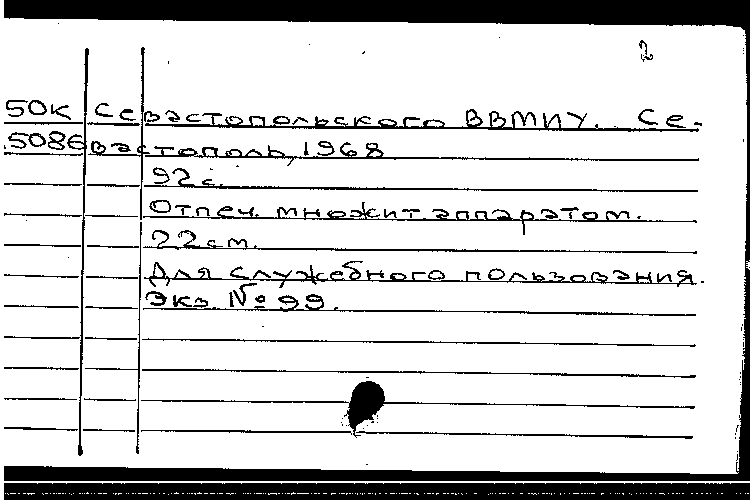 2
50к Севастопольского ВВМИУ. Се-
5086 вастополь, 1968
92 с.
Отпеч. множит. аппаратом.
22 см.
Для служебного пользования.
Экз. № 99.